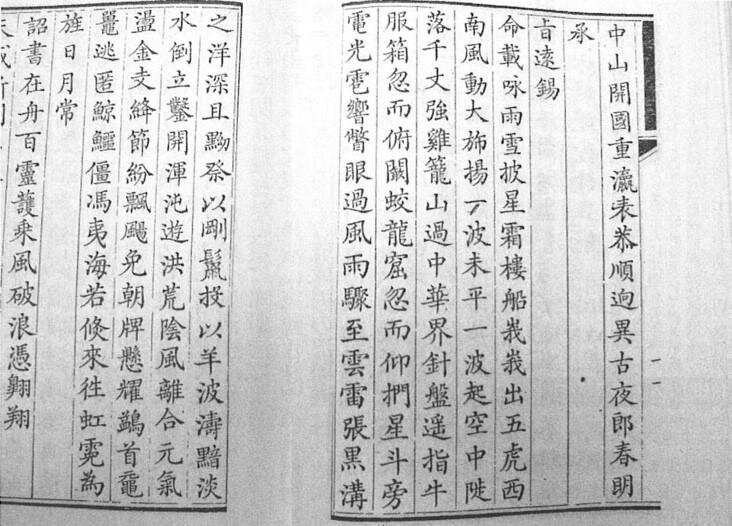 中山開國重瀛表恭順逈異古夜郎春明
承
旨遠錫
命載咏雨雪披星霜樓船峩峩出五虎西
南風動大斾揚一波未平一波起空中陡
落千丈強雞籠山過中華界針盤遥指牛
服箱忽而俯闞蛟龍窟忽而仰捫星斗旁
電光雹響瞥眼過風雨驟至雲雷張黑溝
之洋深且黝祭以剛鬣投以羊波濤黯淡
水倒立鑿開渾沌遊洪荒陰風離合元氣
盪金支絳節紛飄颺免朝牌懸耀鷁首黿
鼉逃匿鯨鱷僵馮夷海若倐來徃虹霓為
旌日月常
詔書在舟百靈護乘風破浪憑翺翔
天威所